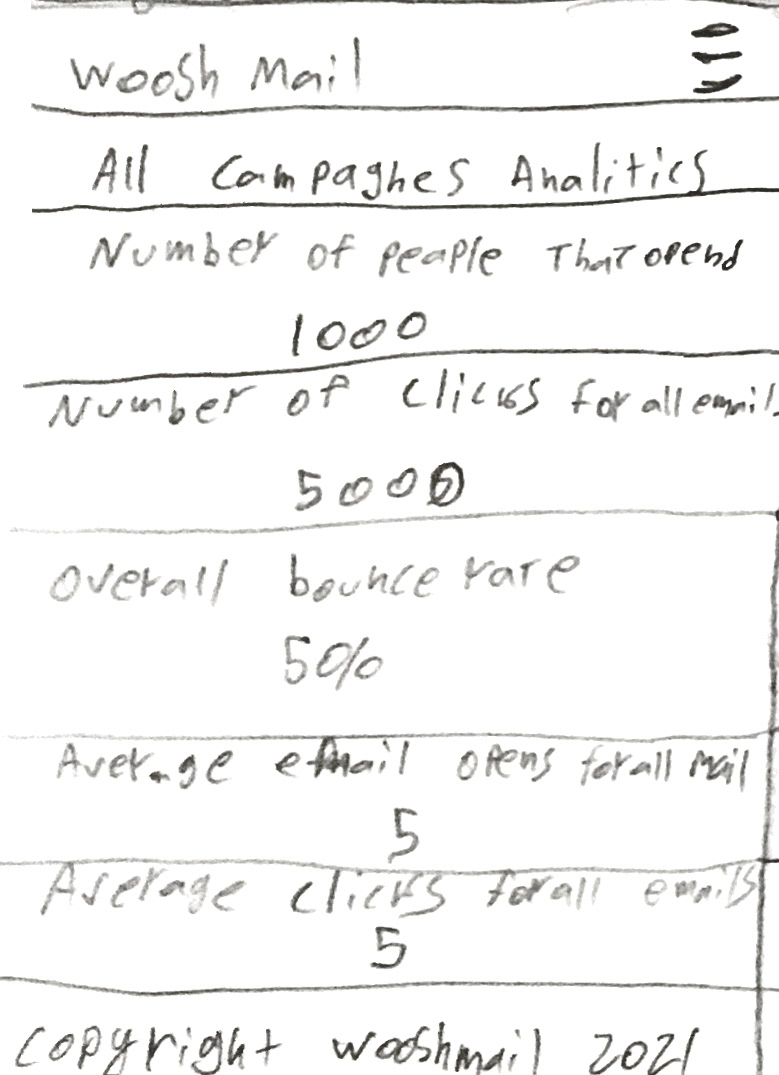 Woosh Mail
All Campaghes Analitics
Number of peaple That opend
1000
Number of clicks for all emails
5000
Overall bounce rate
50%
Average email opens for all mail
5
Average clicks for all emails
5
copyright wooshmail 2021